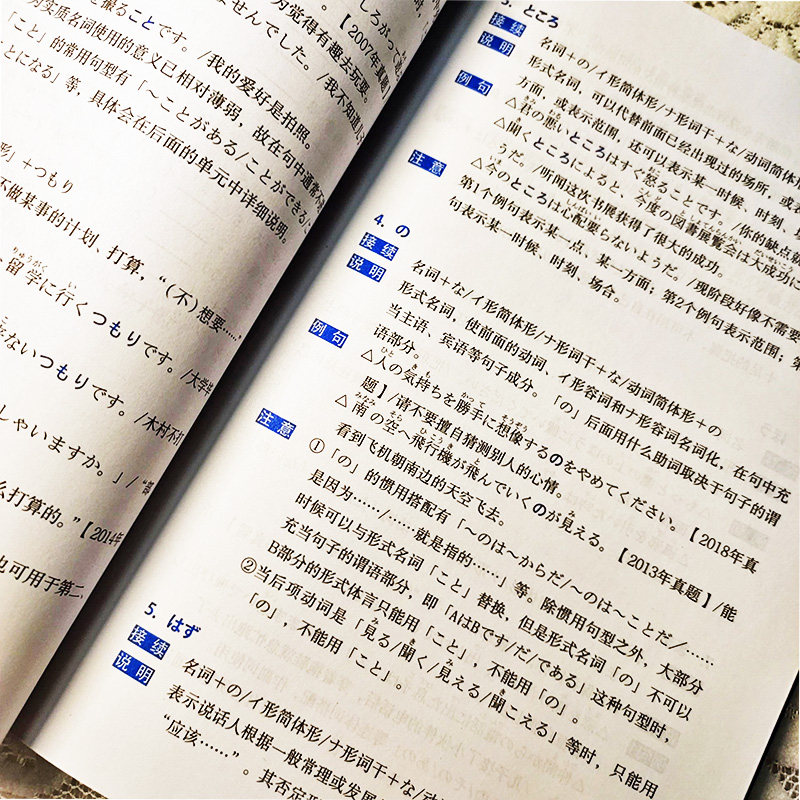 撮ることです。/我的爱好是拍照。
ませんでした。/我不知道
为觉得有趣去玩耍。
【2007年真题】
为实质名词使用的意义已相对薄弱，故在句中通常不
「こと」的常用句型有「～ことがある/ことができる/
とになる」等，具体会在后面的单元中详细说明。
形」+つもり
不做某事的计划、打算，“（不）想要……
留学に行くつもりです。/大学
ないつもりです。/木村不
しゃいますか。」/“
么打算的。”【2014年
也可用于第二
3. ところ
接续
名词＋の/イ形简体形/ナ形词干＋な/动词简体形
说明
形式名词，可以代替前面已经出现过的场所，或
方面，或表示范围，还可以表示某一时候、时刻、
例句
△君の悪いところはすぐ怒ることです。/你的缺点
△聞くところによると、今度の図書展覧会は大成功に
うだ。/听闻这次书展获得了很大的成功。
△今のところは心配要らないようだ。/现阶段好像不需要
注意
第1个例句表示某一点、某一方面；第2个例句表示范围；第
句表示某一时候、时刻、场合。
4. の
接续
名词＋な/イ形简体形/ナ形词干＋な/动词简体形＋の
说明
形式名词，使前面的动词、イ形容词和ナ形容词名词化，在句中充
当主语、宾语等句子成分。「の」后面用什么助词取决于句子的谓
语部分。
例句
△人の気持ちを勝手に想像するのをやめてください。【2018年真
题】/请不要擅自猜测别人的心情。
△南の空へ飛行機が飛んでいくのが見える。【2013年真题】/能
看到飞机朝南边的天空飞去。
注意
①「の」的惯用搭配有「～のは～からだ/～のは～ことだ/……
是因为……/……就是指的……」等。除惯用句型之外，大部分
时候可以与形式名词「こと」替换，但是形式名词「の」不可以
充当句子的谓语部分，即「AはBです/だ/である」这种句型时，
B部分的形式体言只能用「こと」，不能用「の」。
②当后项动词是「見る/聞く/見える/聞こえる」等时，只能用
「の」，不能用「こと」。
5. はず
接续
名词＋の/イ形简体形/ナ形词干＋な/动
说明
表示说话人根据一般常理或发展
“应该……”。其否定